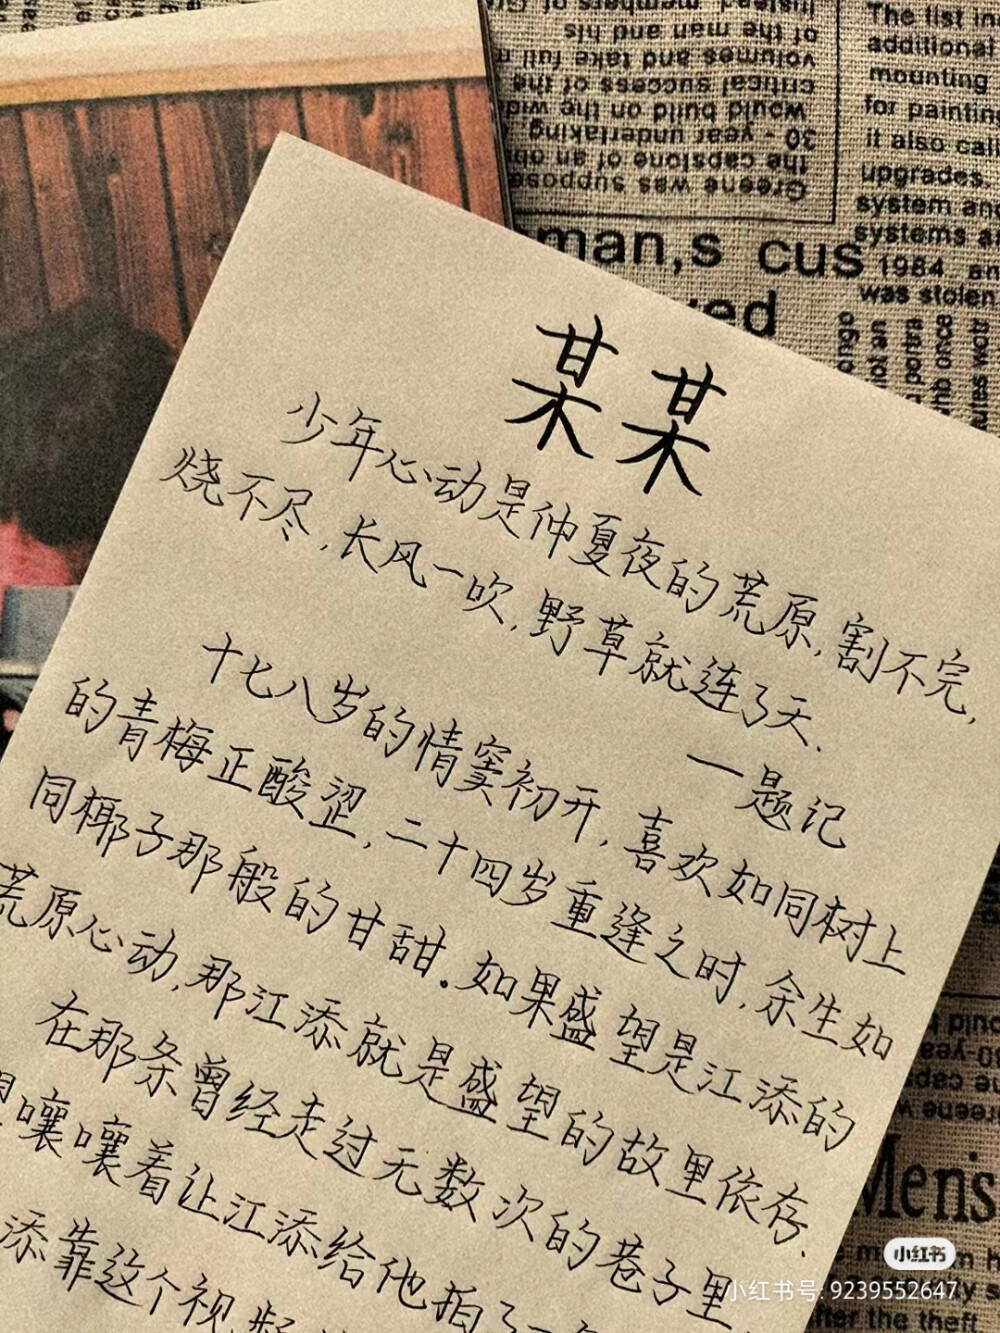 某某
少年心动是仲夏夜的荒原,割不完,
烧不尽,长风一吹,野草就连了天.
一题记
十七八岁的情窦初开,喜欢如同树上
的青梅正酸涩,二十四岁重逢之时,余生如
同椰子那般的甘甜.如果盛望是江添的
荒原心动,那江添就是盛望的故里依存.
在那条曾经走过无数次的巷子里,
嚷嚷着让江添给他拍了一
添靠这个视频
Instead, members of Gr
of the man and his
volumes and take full
critical success of the
would build on the wide
30 - year undertaking,
the capstone of an ob
Greene was suppose
The list in
additional
mounting
for painting
it also call
upgrades.
system and
systems a
1984, an
was stolen
man,s cus
ed
Mens
fter the theft
小红书
小红书号: 9239552647